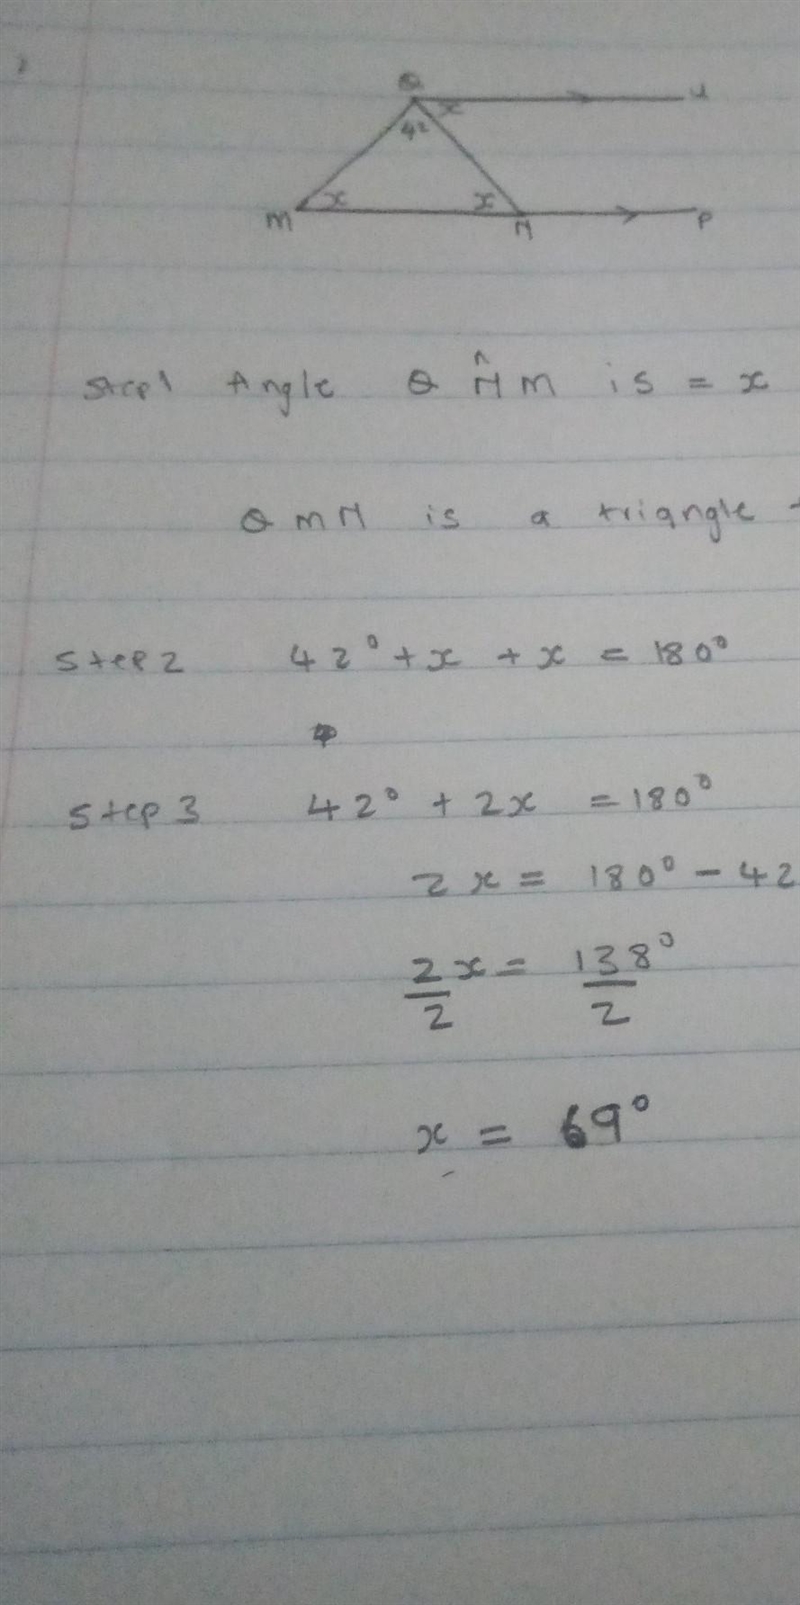 Q
x
u
42
x
x
M
N
P
Step1 Angle Q N̂ M is = x
Q M N is a triangle
Step2 42° + x + x = 180°
Step 3 42° + 2x = 180°
2x = 180° - 42
2x/2 = 138°/2
x = 69°